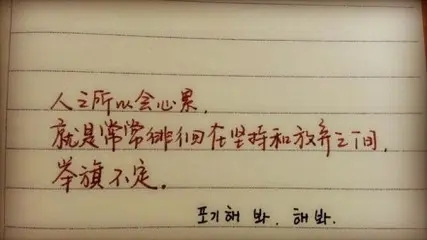 人之所以会心累,
就是常常徘徊在坚持和放弃之间,
举旗不定.
포기해 봐. 해봐.